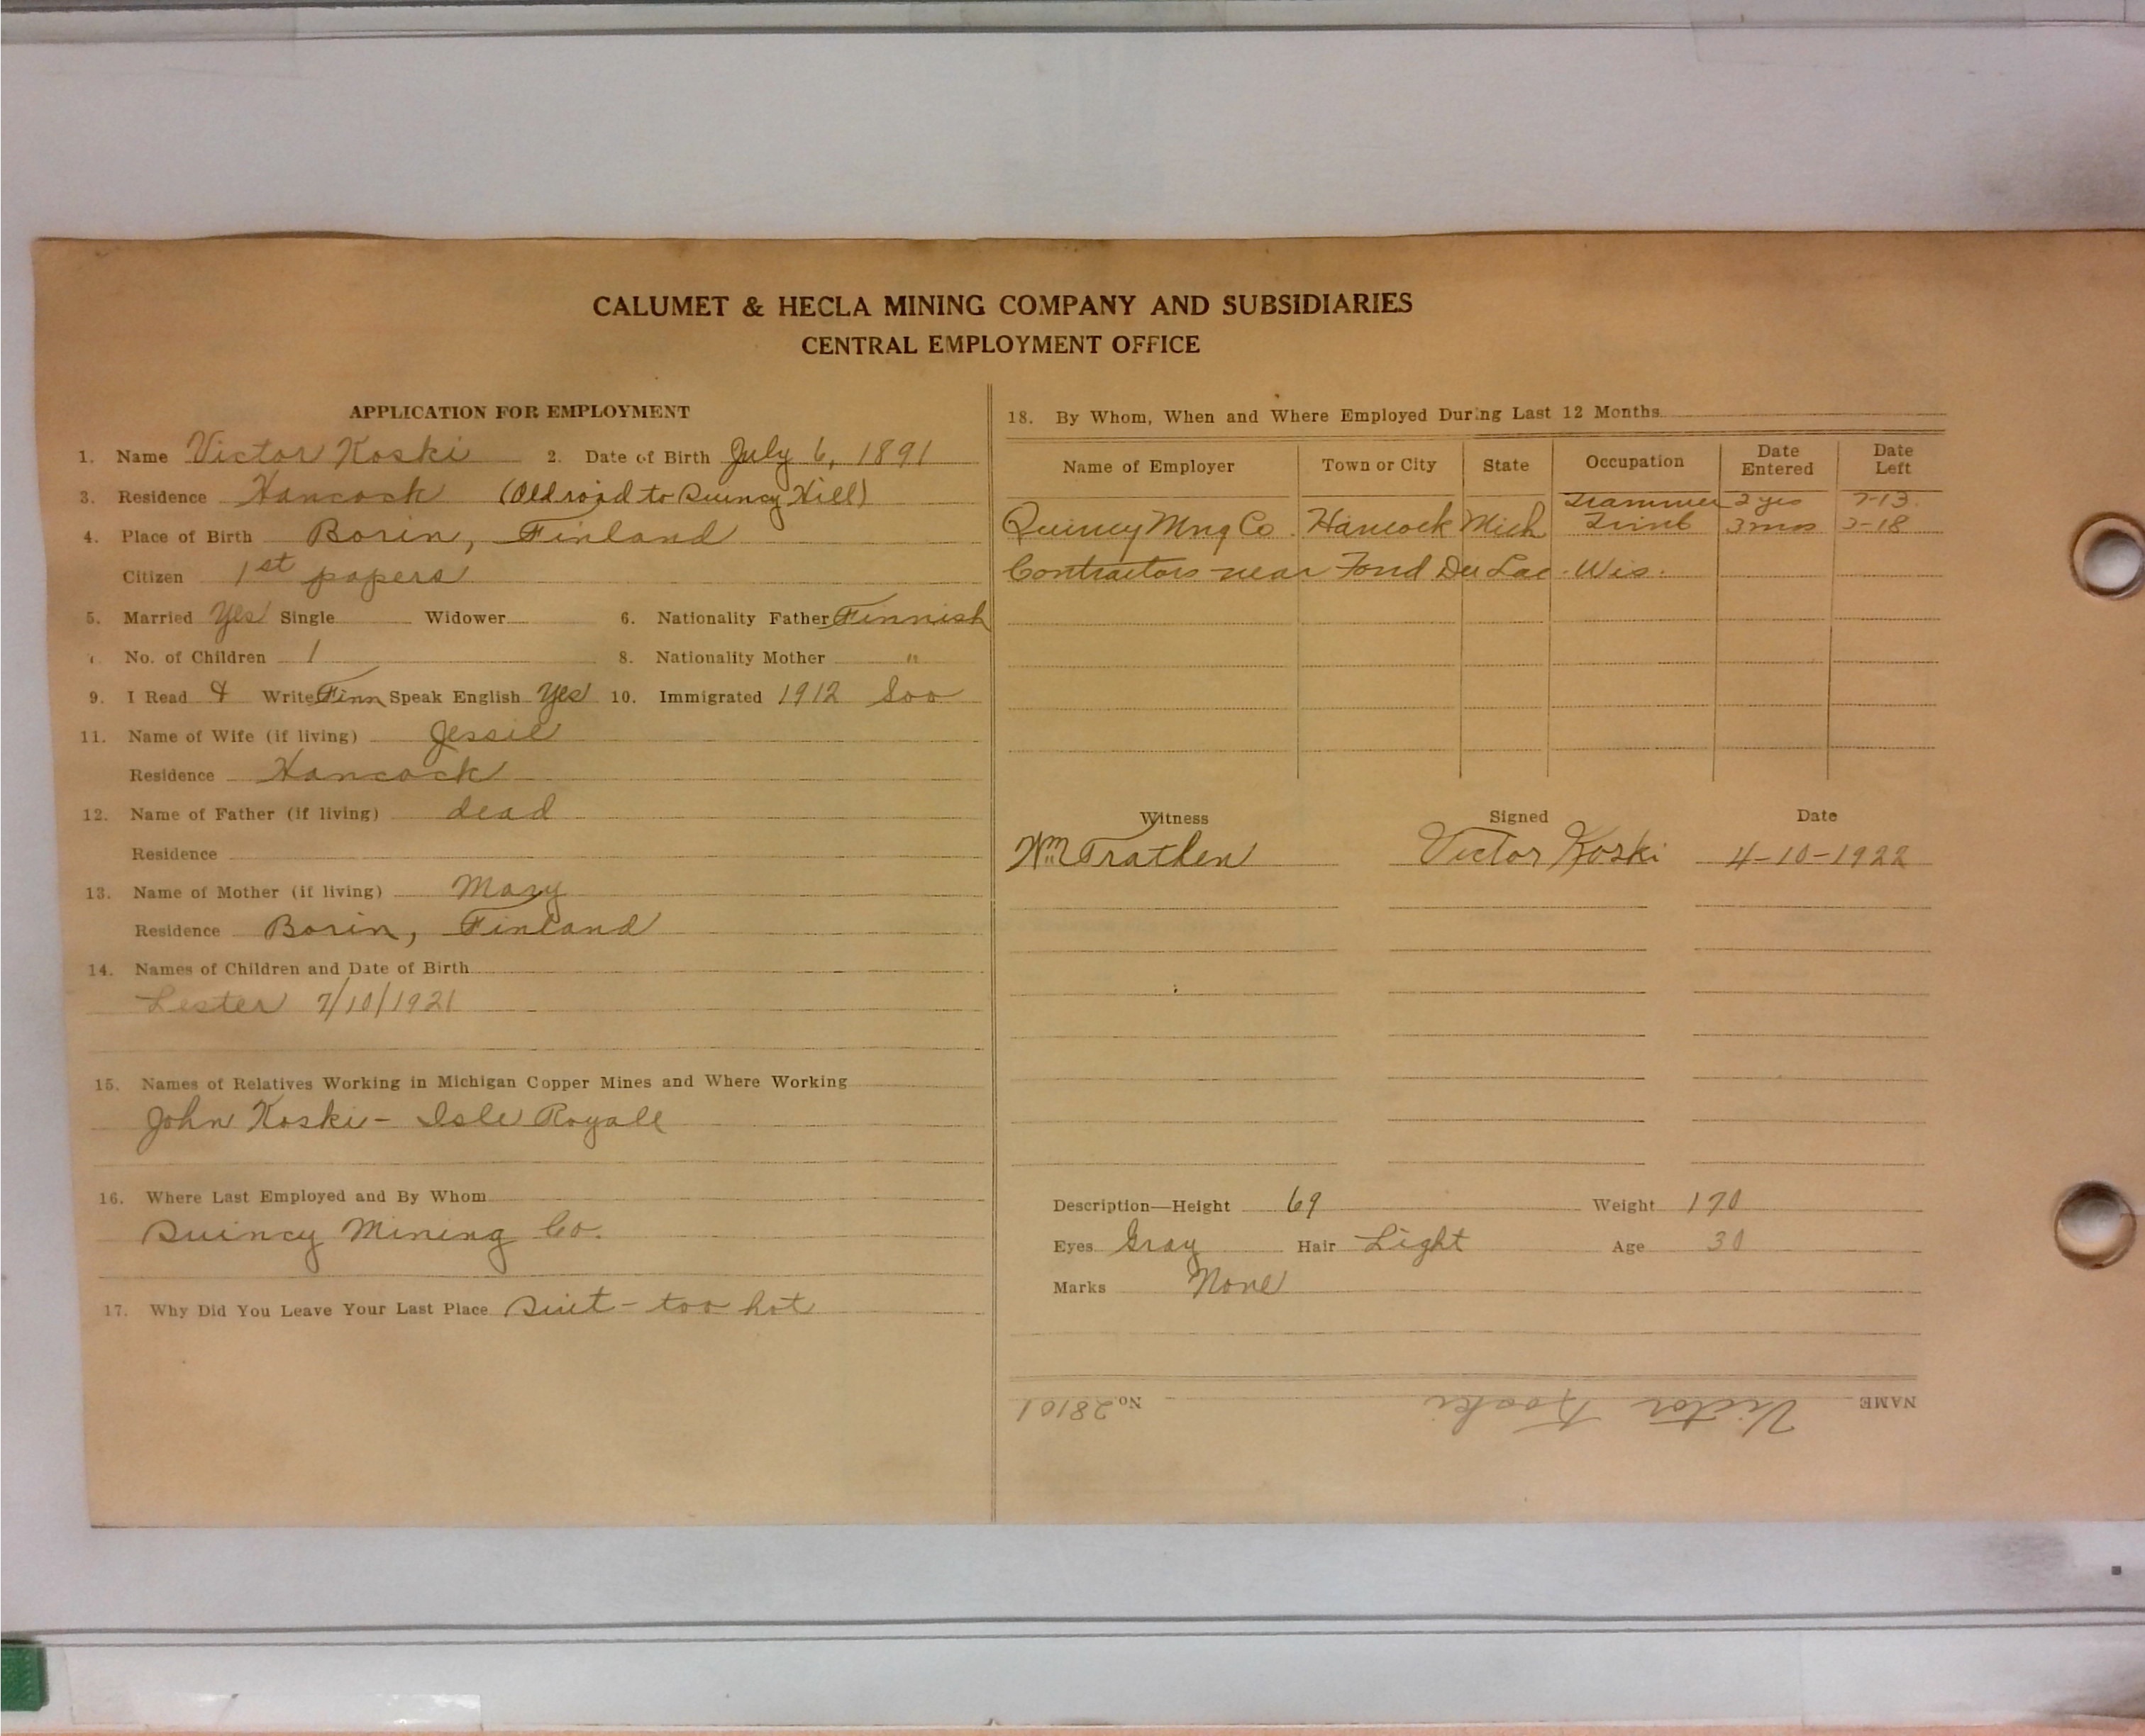 CALUMET & HECLA MINING COMPANY AND SUBSIDIARIES
CENTRAL EMPLOYMENT OFFICE
APPLICATION FOR EMPLOYMENT
1. Name Victor Koski 2. Date of Birth July 6, 1891
3. Residence Hancock (Old road to Quincy Hill)
4. Place of Birth Borin, Finland
Citizen 1st papers
5. Married Yes Single Widower 6. Nationality Father Finnish
No. of Children 1 8. Nationality Mother "
9. I Read & Write Finn Speak English Yes 10. Immigrated 1912 Soo
11. Name of Wife (if living) Jessie
Residence Hancock
12. Name of Father (if living) dead
Residence
13. Name of Mother (if living) Mary
Residence Borin, Finland
14. Names of Children and Date of Birth
Lester 7/10/1921
15. Names of Relatives Working in Michigan Copper Mines and Where Working
John Koski - Isle Royale
16. Where Last Employed and By Whom
Quincy Mining Co.
17. Why Did You Leave Your Last Place Quit - too hot
18. By Whom, When and Where Employed During Last 12 Months
Name of Employer Town or City State Occupation Date Entered Date Left
Trammer 2 yrs 7-13
Quincy Mng Co. Hancock Mich 3 mos 2-18
Contractors near Fond Du Lac. Wis.
Witness Signed Date
Wm Trathen Victor Koski 4-10-1922
Description—Height 69 Weight 170
Eyes Gray Hair Light Age 30
Marks None
NAME Victor Koski No. 28101